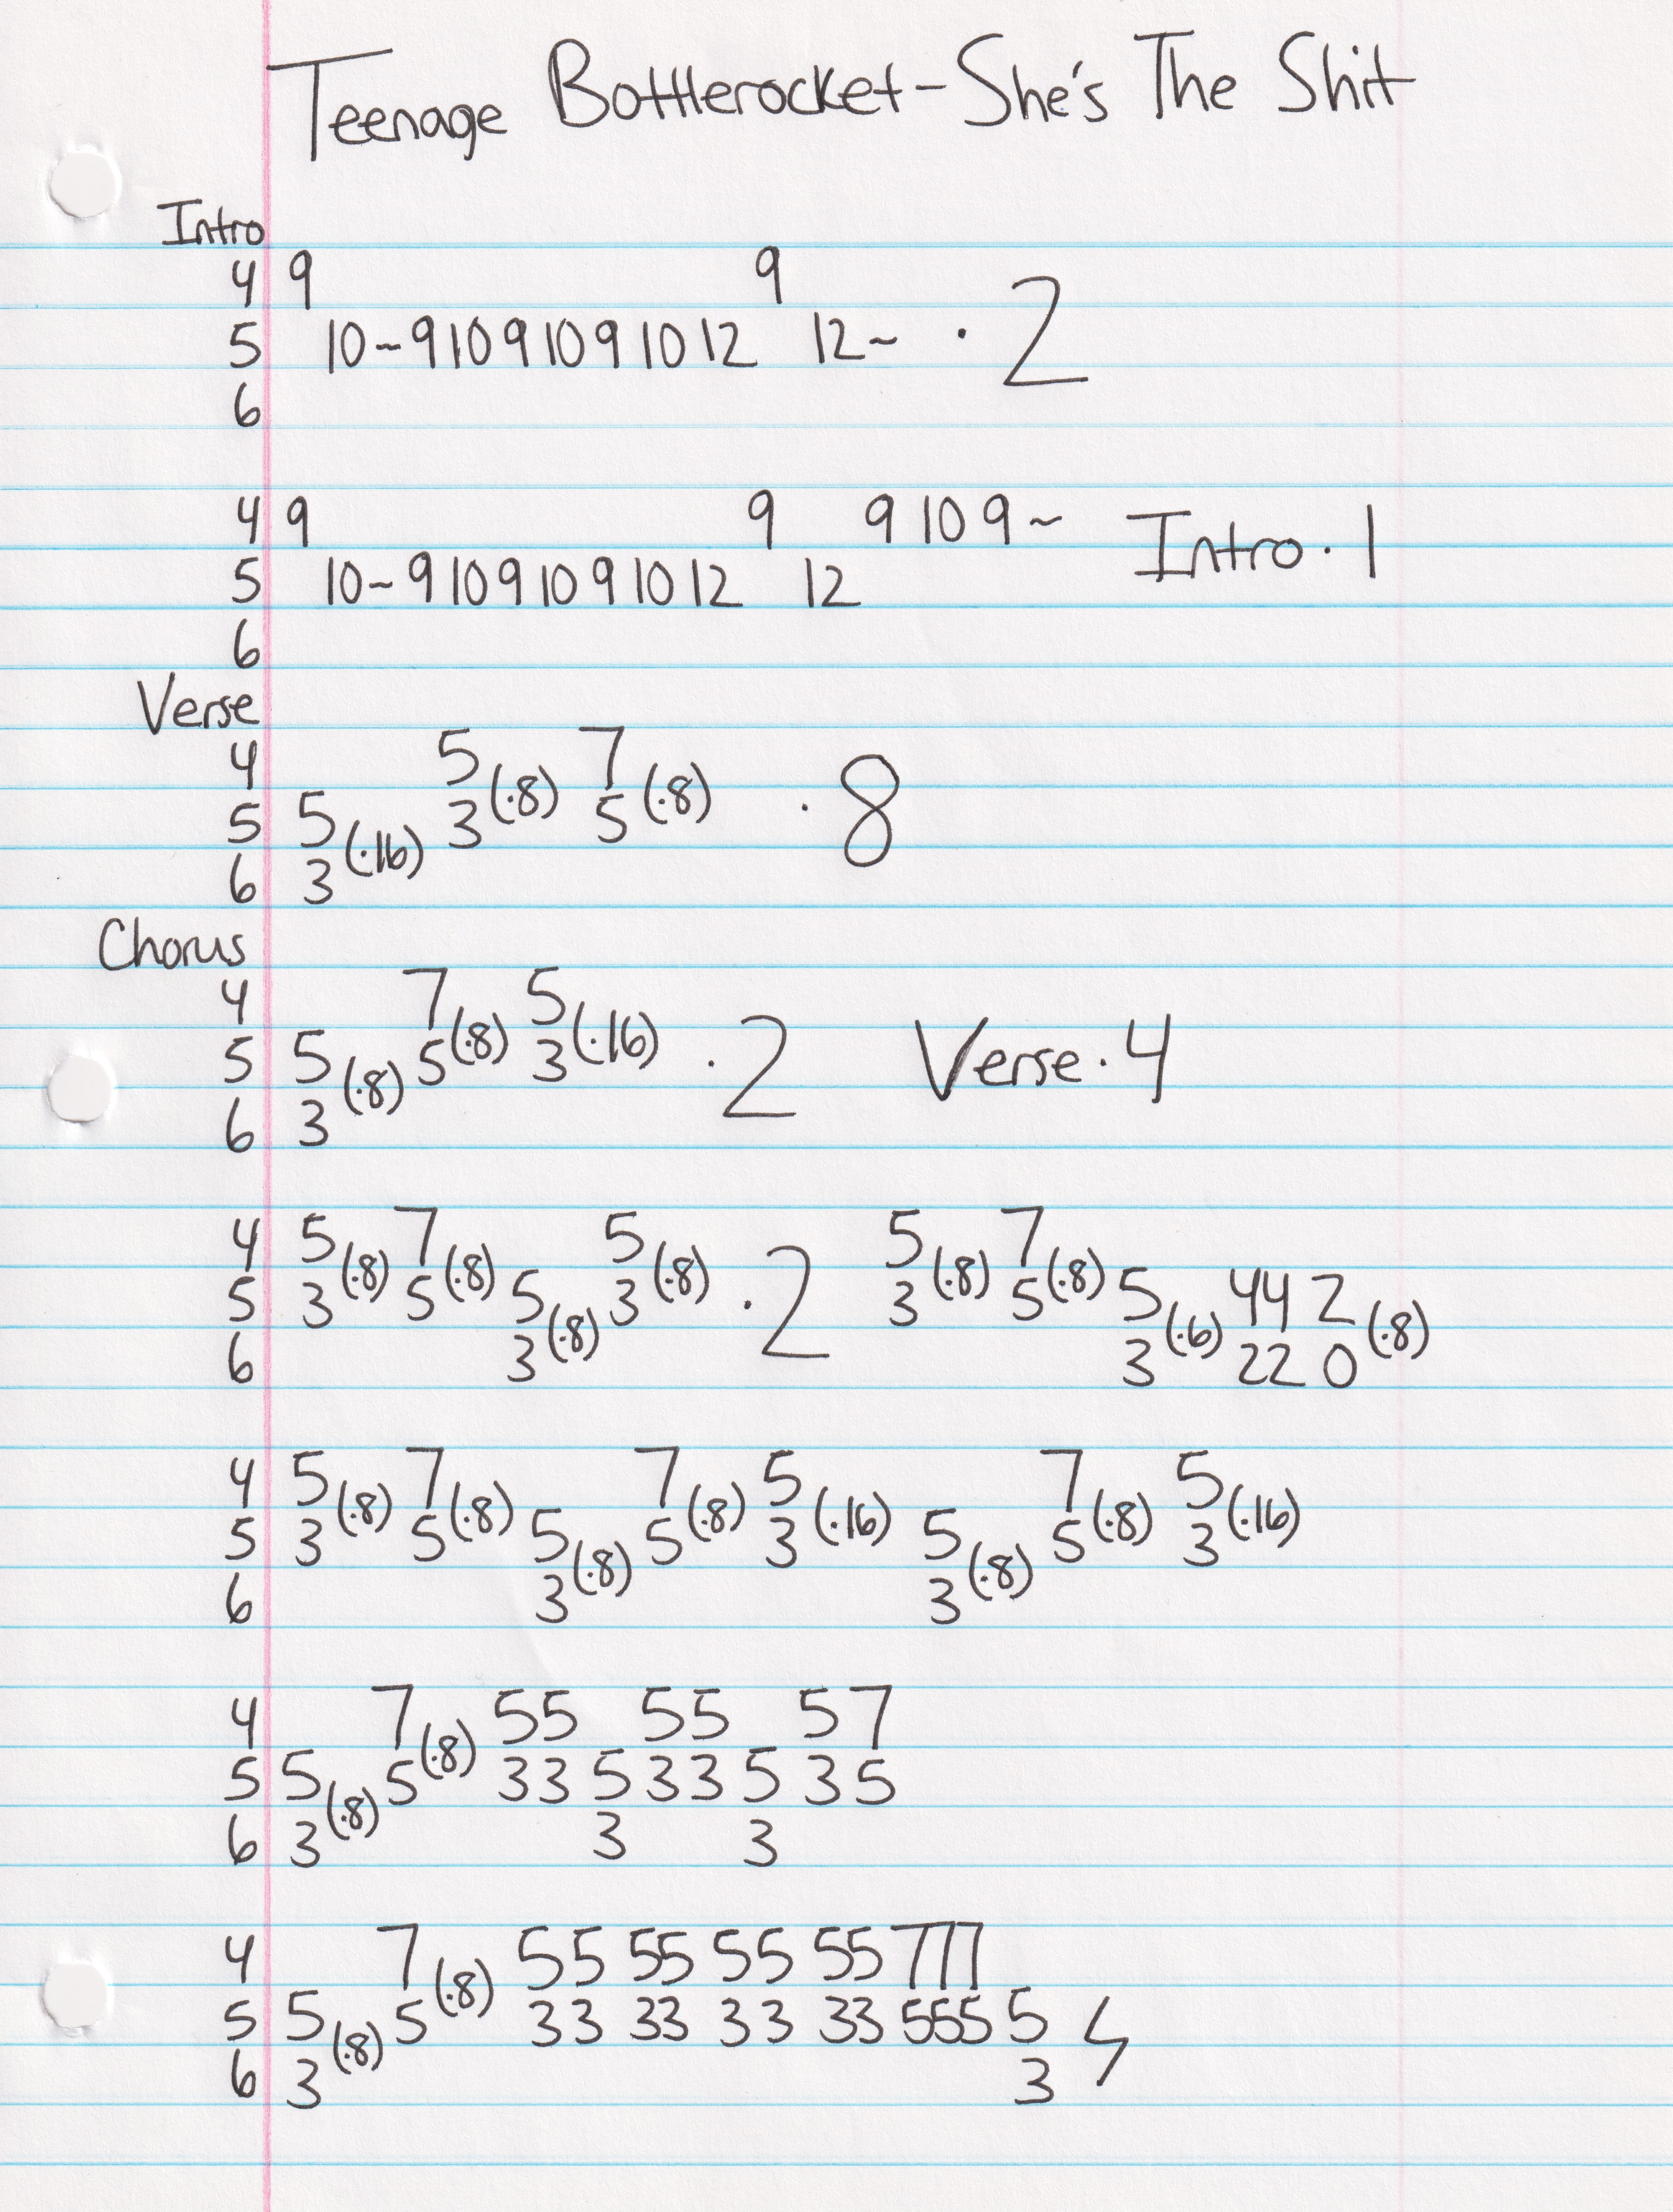 Teenage Bottlerocket - She's The Shit
Intro
4 9 9
5 10~9 10 9 10 9 10 12 12~ · 2
6
4 9 9 9 10 9~ Intro · 1
5 10~9 10 9 10 9 10 12 12
6
Verse
4 5 7
5 5 3 (·8) 5 (·8) · 8
6 3 (·16)
Chorus
4 7 5
5 5 5 (·8) 3 (·16) · 2 Verse · 4
6 3 (·8)
4 5 7 5 5 7
5 3 (·8) 5 (·8) 5 3 (·8) · 2 3 (·8) 5 (·8) 5 4 4 2
6 3 (·8) 3 (·6) 2 2 0 (·8)
4 5 7 7 5 7 5
5 3 (·8) 5 (·8) 5 5 (·8) 3 (·16) 5 5 (·8) 3 (·16)
6 3 (·8) 3 (·8)
4 7 5 5 5 5 5 7
5 5 5 (·8) 3 3 5 3 3 5 3 5
6 3 (·8) 3 3
4 7 5 5 5 5 5 5 5 5 7 7 7
5 5 5 (·8) 3 3 3 3 3 3 3 3 5 5 5 5
6 3 (·8) 3